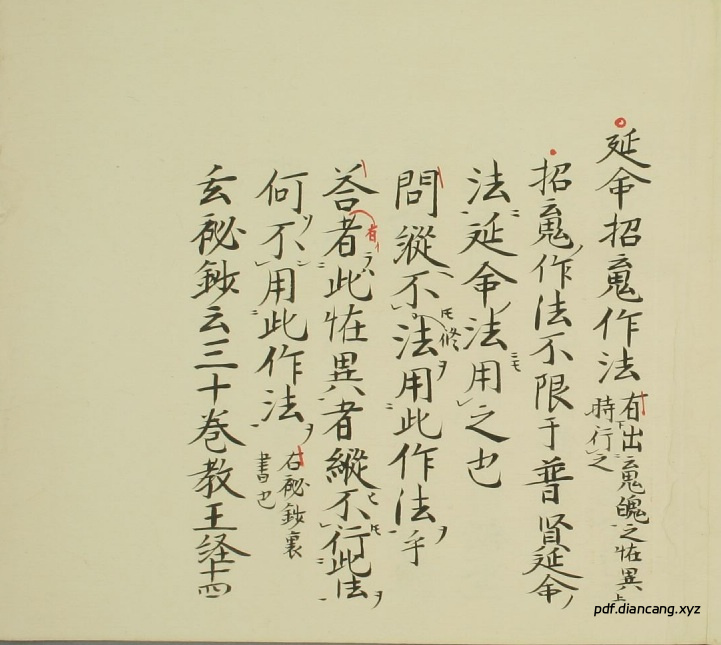 延命招䰟作法 有出䰟魄之恠異上
時行之
招䰟作法不限于普賢延命
法延命法用之也
問縱不修法用此作法乎
答者此恠異者縱不行此法
何不用此作法 右祕鈔裏
書也
玄祕鈔云三十卷教王経十四
pdf.diancang.xyz